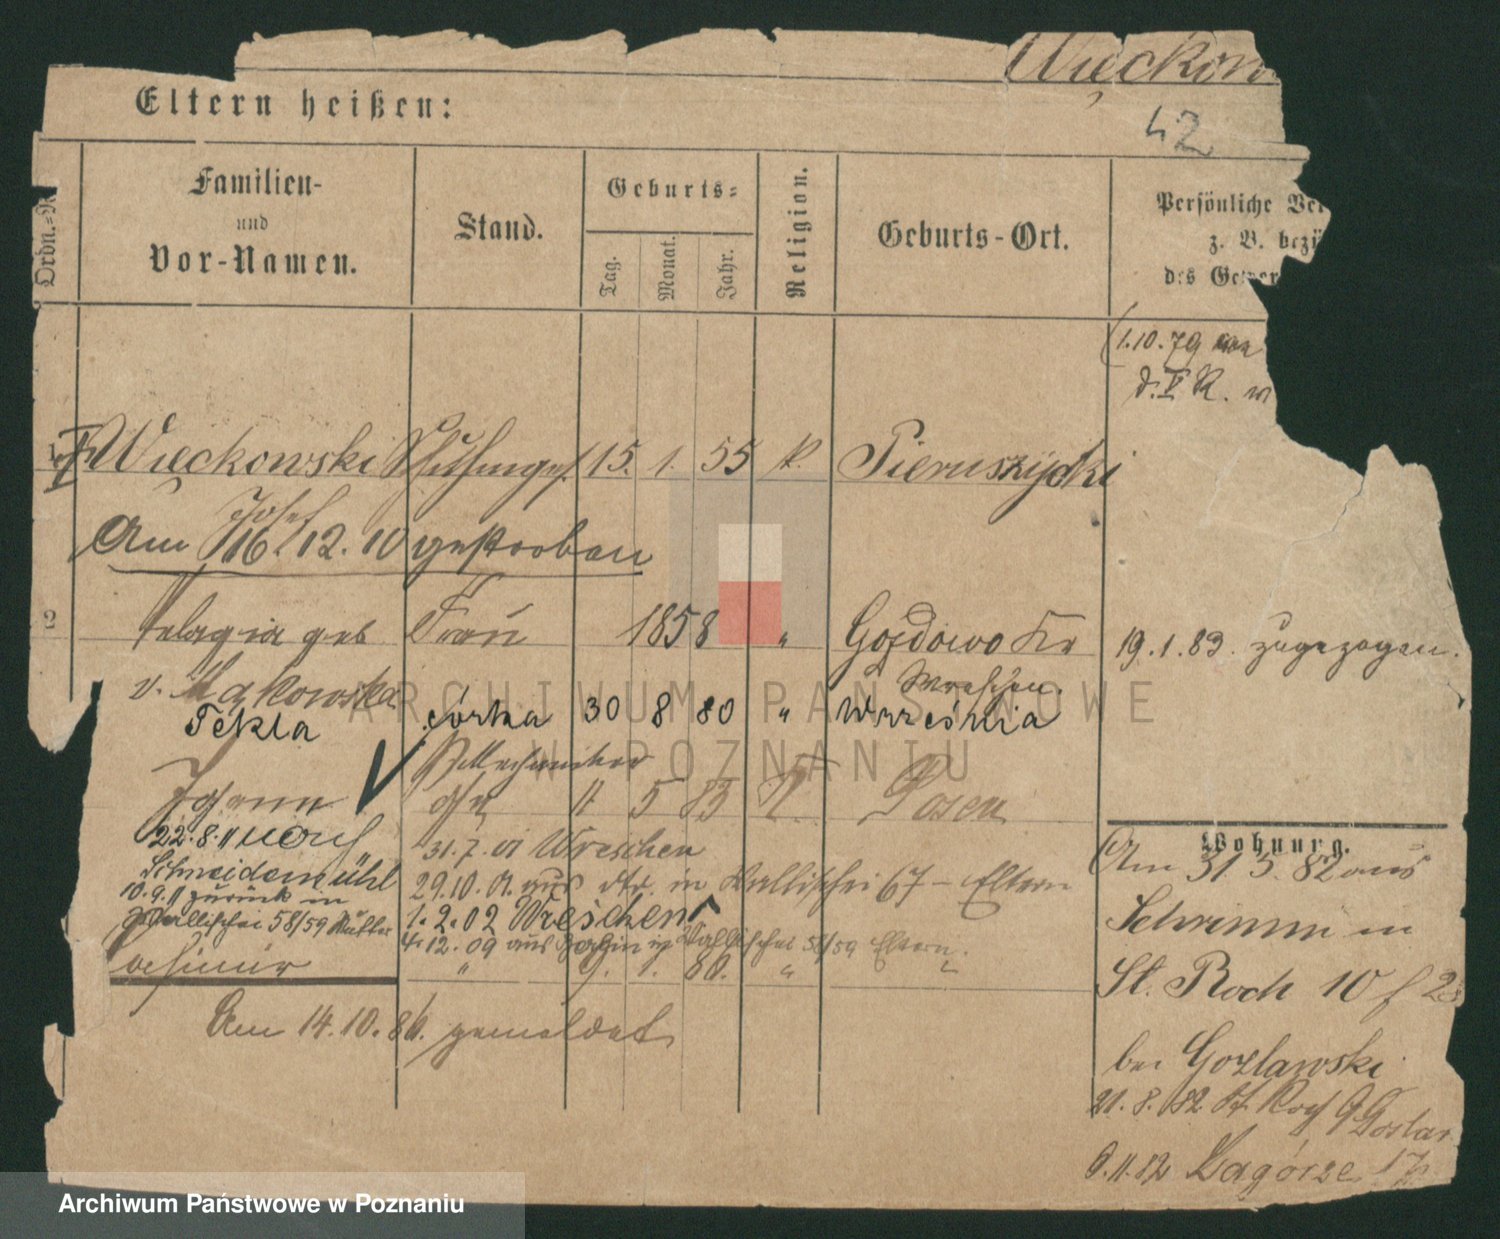 Więckow
Eltern heißen:
42
Ordn.=N
Familien-
und
Vor-Namen.
Stand.
Geburts=
Tag.
Monat.
Jahr.
Religion.
Geburts-Ort.
Persönliche Ver
z. B. bezü
des Ge
(1.10.79
d. V R. w
1 Więckowski 15. 1. 55 k.
Josef
Am 16/12.10 gestorben
2 Pelagia geb Frau 1858 " Gozdowo Kr 19.1.83. zugezogen.
v. Makowska Wreschen.
Tekla córka 30 8 80 " Września
ARCHIWUM PAŃSTWOWE
W POZNANIU
Johann 11 5 83 Posen
22.8.11 nach 31.7.01 Wreschen
Schneidemühl 29.10.01 aus in Wallischei 67 - Eltern
10.9.11 zurück in 1.2.02 Wreschen
Wallischei 58/59 Mutter 4.12.09 aus Wallischei 58/59 Eltern.
" 9. 1. 86. "
Am 14.10.86. gemeldet
Wohnung.
Am 31 3. 82 aus
Schrimm in
St. Roch 10 f
bei Gozlawski
21.8.82 St Roch 9
.11.82 Zagórze 17
Archiwum Państwowe w Poznaniu